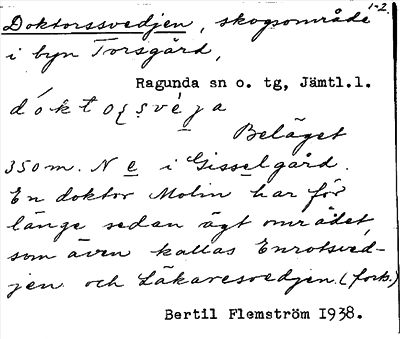 Doktorssvedjen, skogsområde 1-2.
i byn Torsgård,
Ragunda sn o. tg, Jämtl.l.
dóktoʂṣvéja
Beläget
350 m. N e i Gisselgård.
En doktor Molin har för
länge sedan ägt området,
som även kallas Enrotsved-
jen och Läkaresvedjen. (forts.)
Bertil Flemström 1938.